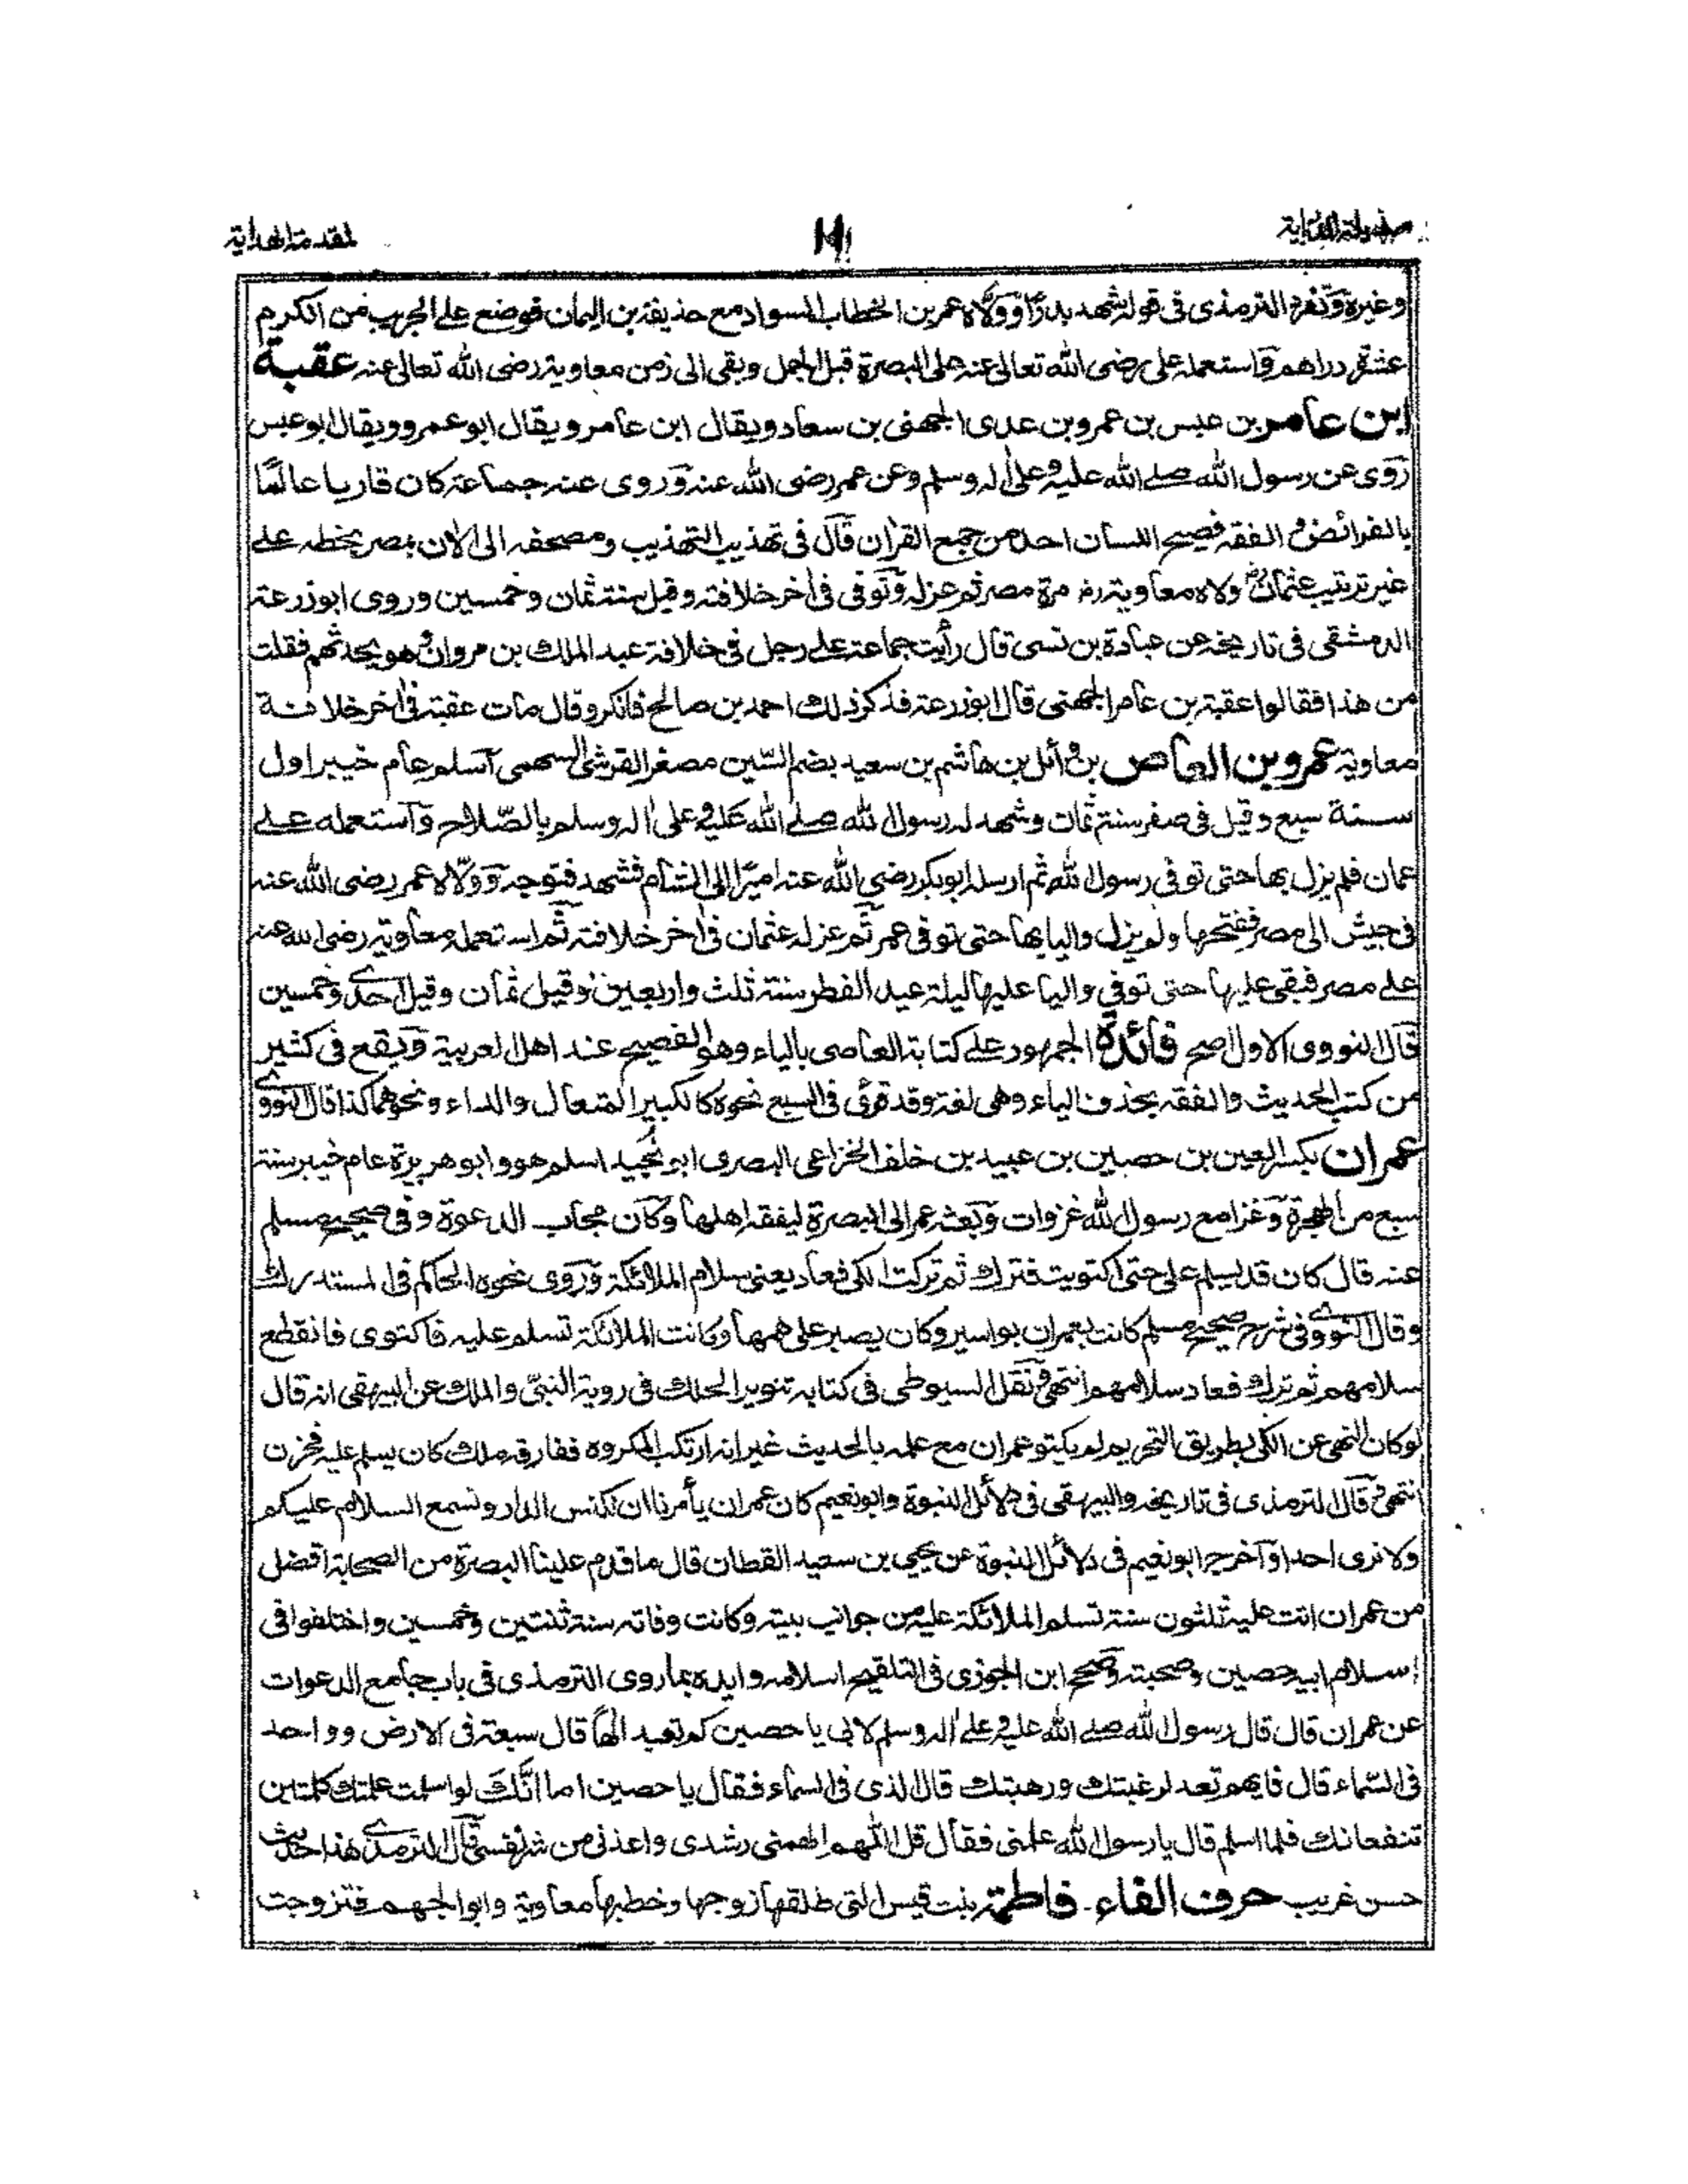 لمقدمة الهداية
وغيره وتفرد الترمذى فى قوله شهد بدرًا وولاه عمر بن الخطاب السواد مع حذيفة بن اليمان فوضع على الجريب من الكرم
عشرة دراهم واستعمله على رضى الله تعالى عنه على البصرة قبل الجمل وبقى الى زمن معاوية رضى الله تعالى عنه عقبة
ابن عامر بن عبس بن عمرو بن عدى الجهنى بن سعاد ويقال ابن عامر ويقال ابو عمرو ويقال ابو عبس
روى عن رسول الله صلے الله عليه وعلىٰ اٰله وسلم وعن عمر رضى الله عنه وروى عنه جماعة كان قاريا عالمًا
بالفرائض والفقه فصيح اللسان احد من جمع القراٰن قال فى تهذيب التهذيب ومصحفه الى الاٰن بمصر بخطه علے
غير ترتيب عثمان ولاه معاوية رض مرة مصر ثم عزله وتوفى فى اٰخر خلافته وقيل سنة ثمان وخمسين وروى ابو زرعة
الدمشقى فى تاريخه عن عبادة بن نسى قال رأيت جماعة علے رجل فى خلافة عبد الملك بن مروان وهو يحدثهم فقلت
من هذا فقالوا عقبة بن عامر الجهنى قال ابو زرعة فذكر ذلك احمد بن صالح فانكر وقال مات عقبة فى اٰخر خلافة
معاوية عمرو بن العاص بن وائل بن هاشم بن سعيد بضم السّين مصغر القرشى السهمى اسلم عام خيبر اول
سنة سبع وقيل فى صفر سنة ثمان وشهد له رسول الله صلے الله عليه وعلىٰ اٰله وسلم بالصّلاح واستعمله علے
عمان فلم يزل بها حتى توفى رسول الله ثم ارسله ابو بكر رضى الله عنه اميرًا الى الشام فشهد فتوحه وولّاه عمر رضى الله عنه
فى جيش الى مصر ففتحها ولم يزل واليا بها حتى توفى عمر ثم عزله عثمان فى اٰخر خلافته ثم استعمله معاوية رضى الله عنه
علے مصر فبقى عليها حتى توفى واليا عليها ليلة عيد الفطر سنة ثلث واربعين وقيل ثمان وقيل احدے وخمسين
قال النووى الاول اصح فائدة الجمهور علے كتابة العاصى بالياء وهو الفصيح عند اهل العربية ويقع فى كثير
من كتب الحديث والفقه بحذف الياء وهى لغة وقد قرئ فى السبع نحوه كالكبير المتعال والداع ونحوهما كذا قال النووے
عمران بكسر العين بن حصين بن عبيد بن خلف الخزاعى البصرى ابو نُجيد اسلم هو وابو هريرة عام خيبر سنة
سبع من الهجرة وغزا مع رسول الله غزوات وبعثه عمر الى البصرة ليفقه اهلها وكان مجاب الدعوة وفى صحيح مسلم
عنه قال كان قد يسلم على حتى اكتويت فترك ثم تركت الكى فعاد يعنى سلام الملائكة وروى نحوه الحاكم فى المستدرك
وقال النووے فى شرح صحيح مسلم كانت بعمران بواسير وكان يصبر على همها وكانت الملائكة تسلم عليه فاكتوى فانقطع
سلامهم ثم ترك فعاد سلامهم انتهى ونقل السيوطى فى كتابه تنوير الحلك فى روية النبىّ والملك عن البيهقى انه قال
لو كان النهى عن الكى بطريق التحريم لم يكتو عمران مع علمه بالحديث غير انه ارتكب المكروه ففارقه ملك كان يسلم عليه فحزن
انتهى وقال الترمذى فى تاريخه والبيهقى فى دلائل النبوة وابو نعيم كان عمران يأمرنا ان نكنس الدار ونسمع السلام عليكم
ولا نرى احدا واخرج ابو نعيم فى دلائل النبوة عن يحيى بن سعيد القطان قال ما قدم علينا البصرة من الصحابة افضل
من عمران اتت عليه ثلثون سنة تسلم الملائكة عليه من جوانب بيته وكانت وفاته سنة ثنتين وخمسين واختلفوا فى
اسلام ابيه حصين وصحبته وصحح ابن الجوزى فى التلقيح اسلامه وايده بما روى الترمذى فى باب جامع الدعوات
عن عمران قال قال رسول الله صلے الله عليه وعلىٰ اٰله وسلم لابى يا حصين كم تعبد الٰهًا قال سبعة فى الارض وواحد
فى السّماء قال فايهم تعد لرغبتك ورهبتك قال الذى فى السماء فقال يا حصين اما انّك لو اسلمت علمتك كلمتين
تنفعانك فلما اسلم قال يا رسول الله علمنى فقال قل اللّٰهم الهمنى رشدى واعذنى من شر نفسى قال الترمذے هذا حديث
حسن غريب حرف الفاء۔ فاطمة بنت قيس التى طلقها زوجها وخطبها معاوية وابو الجهم فتزوجت